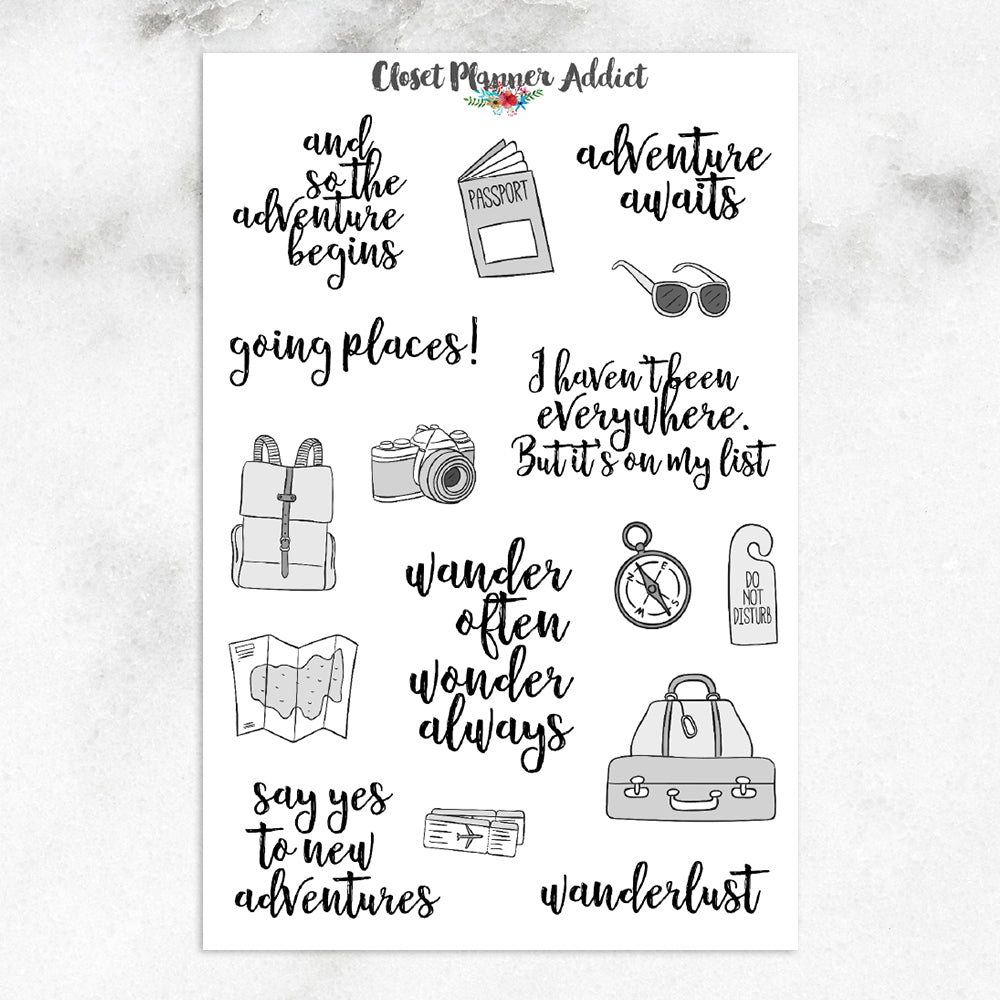 Closet Planner Addict
and
so the
adventure
begins
PASSPORT
adventure
awaits
going places!
I haven't been
everywhere.
But it's on my list
N E
W S
DO
NOT
DISTURB
wander
often
wonder
always
say yes
to new
adventures
wanderlust